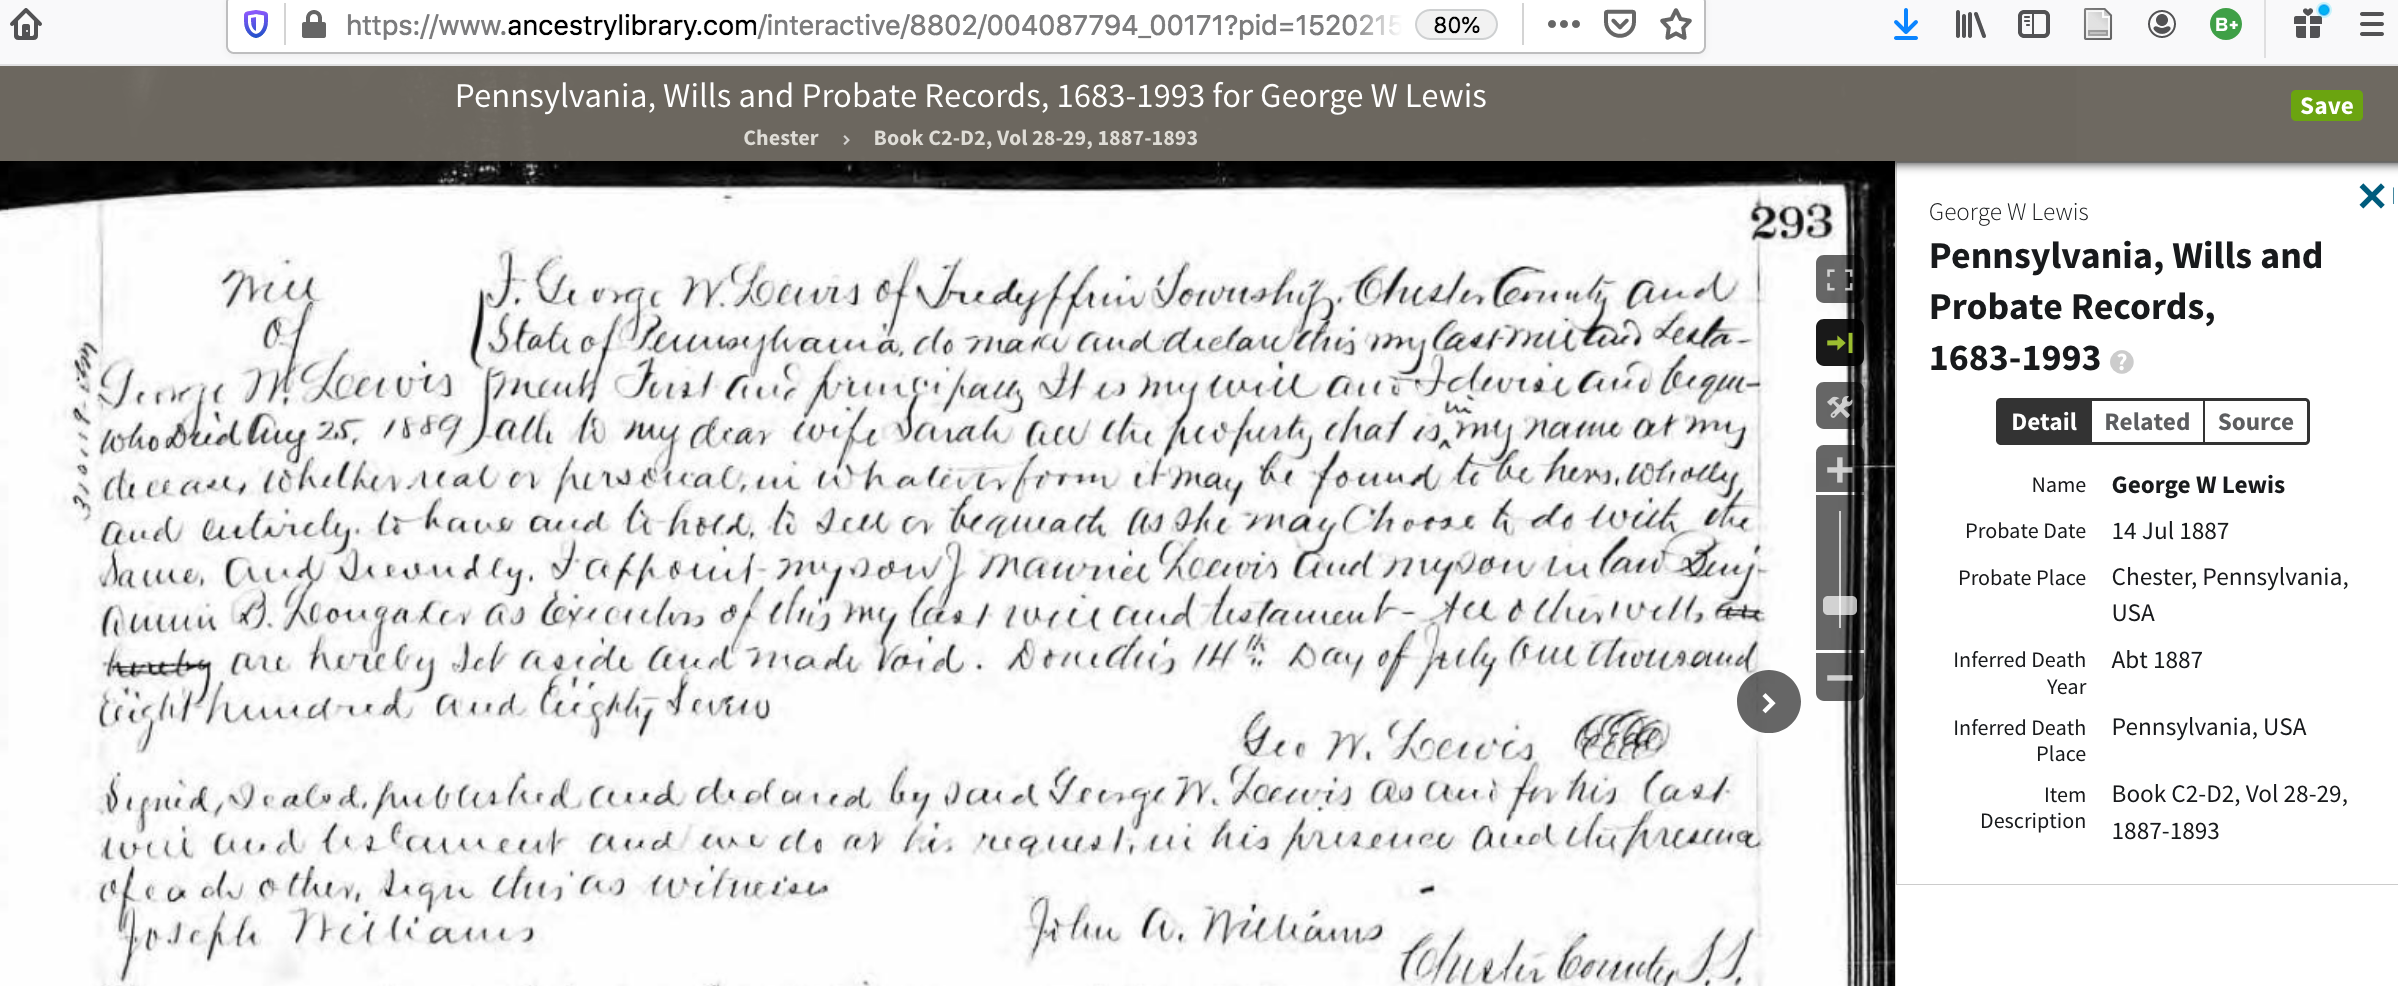 https://www.ancestrylibrary.com/interactive/8802/004087794_00171?pid=1520215
80%
B+
Pennsylvania, Wills and Probate Records, 1683-1993 for George W Lewis
Save
Chester > Book C2-D2, Vol 28-29, 1887-1893
293
Will
of
George W. Lewis
who Died Aug 25, 1889
I, George W. Lewis of Tredyffrin Township, Chester County and
State of Pennsylvania, do make and declare this my last will and testa-
ment First and principally It is my will and I devise and beque-
ath to my dear wife Sarah all the property that is in my name at my
decease, whether real or personal, in whatever form it may be found to be hers, wholly
and entirely, to have and to hold, to sell or bequeath as she may Choose to do with the
same. And Secondly, I appoint my son J Maurice Lewis and my son in law Benj-
amin B. Longaker as Executors of this my last will and testament - All other wills are
hereby are hereby set aside and made void. Done this 14th Day of July One thousand
Eight hundred and Eighty Seven
Geo W. Lewis
Signed, Sealed, published and declared by said George W. Lewis as and for his last
will and testament and we do at his request, in his presence and the presence
of each other, sign this as witnesses
Joseph Williams
John A. Williams
Chester County, S.S.
George W Lewis
Pennsylvania, Wills and
Probate Records,
1683-1993 ?
Detail Related Source
Name George W Lewis
Probate Date 14 Jul 1887
Probate Place Chester, Pennsylvania,
USA
Inferred Death
Year
Abt 1887
Inferred Death
Place
Pennsylvania, USA
Item
Description
Book C2-D2, Vol 28-29,
1887-1893